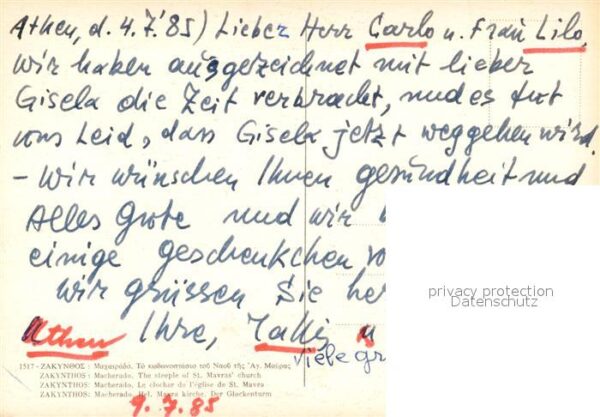 Athen, d. 4.7.'85) Lieber Herr Carlo u. Frau Lilo,
wir haben ausgezeichnet mit lieber
Gisela die Zeit verbracht, und es tut
uns Leid, dass Gisela jetzt weggehen wird.
- Wir wünschen Ihnen gesundheit und
Alles Gute und wir
einige geschenkchen
Wir grüssen Sie her
Athen Ihre, u
viele gr
1517 - ΖΑΚΥΝΘΟΣ : Μαχαιράδο. Τὸ κωδωνοστάσιο τοῦ Ναοῦ τῆς Ἁγ. Μαύρας
ZAKYNTHOS : Macherado. The steeple of St. Mavras' church
ZAKYNTHOS : Macherado. Le clocher de l'église de St. Mavra
ZAKYNTHOS: Macherado. Hel. Mavra kirche. Der Glockenturm
9.7.85
privacy protection
Datenschutz